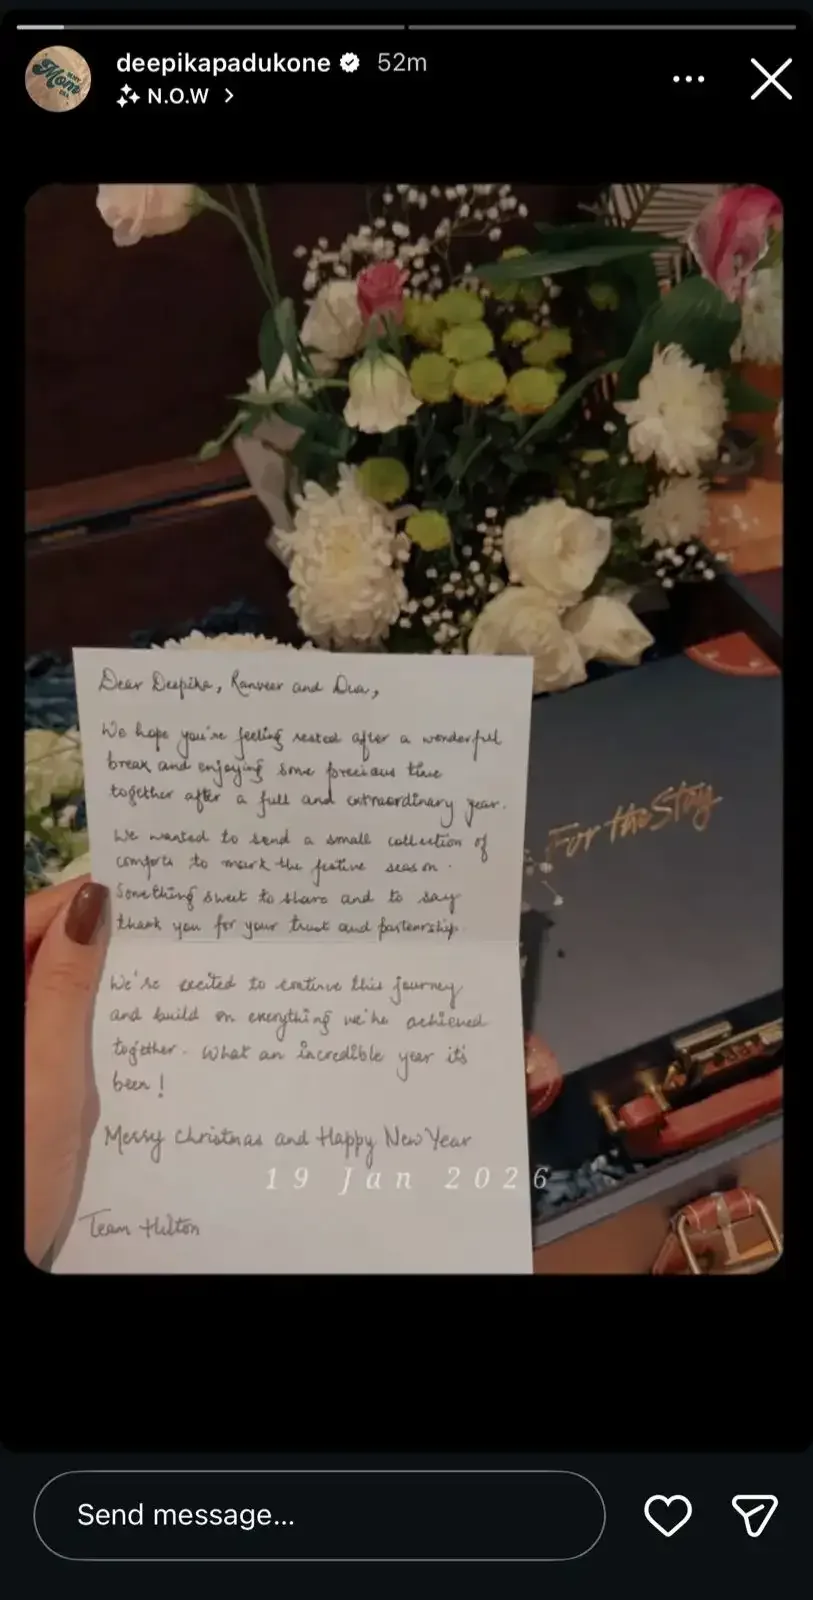 deepikapadukone 52m
N.O.W >
Dear Deepika, Ranveer and Dua,
We hope you're feeling rested after a wonderful
break and enjoying some precious time
together after a full and extraordinary year.
We wanted to send a small collection of
comforts to mark the festive season.
Something sweet to share and to say
thank you for your trust and partenrship.
We're excited to continue this journey
and build on everything we've achieved
together. What an incredible year it's
been!
Merry Christmas and Happy New Year
19 Jan 2026
Team Hilton
For the Stay
Send message...